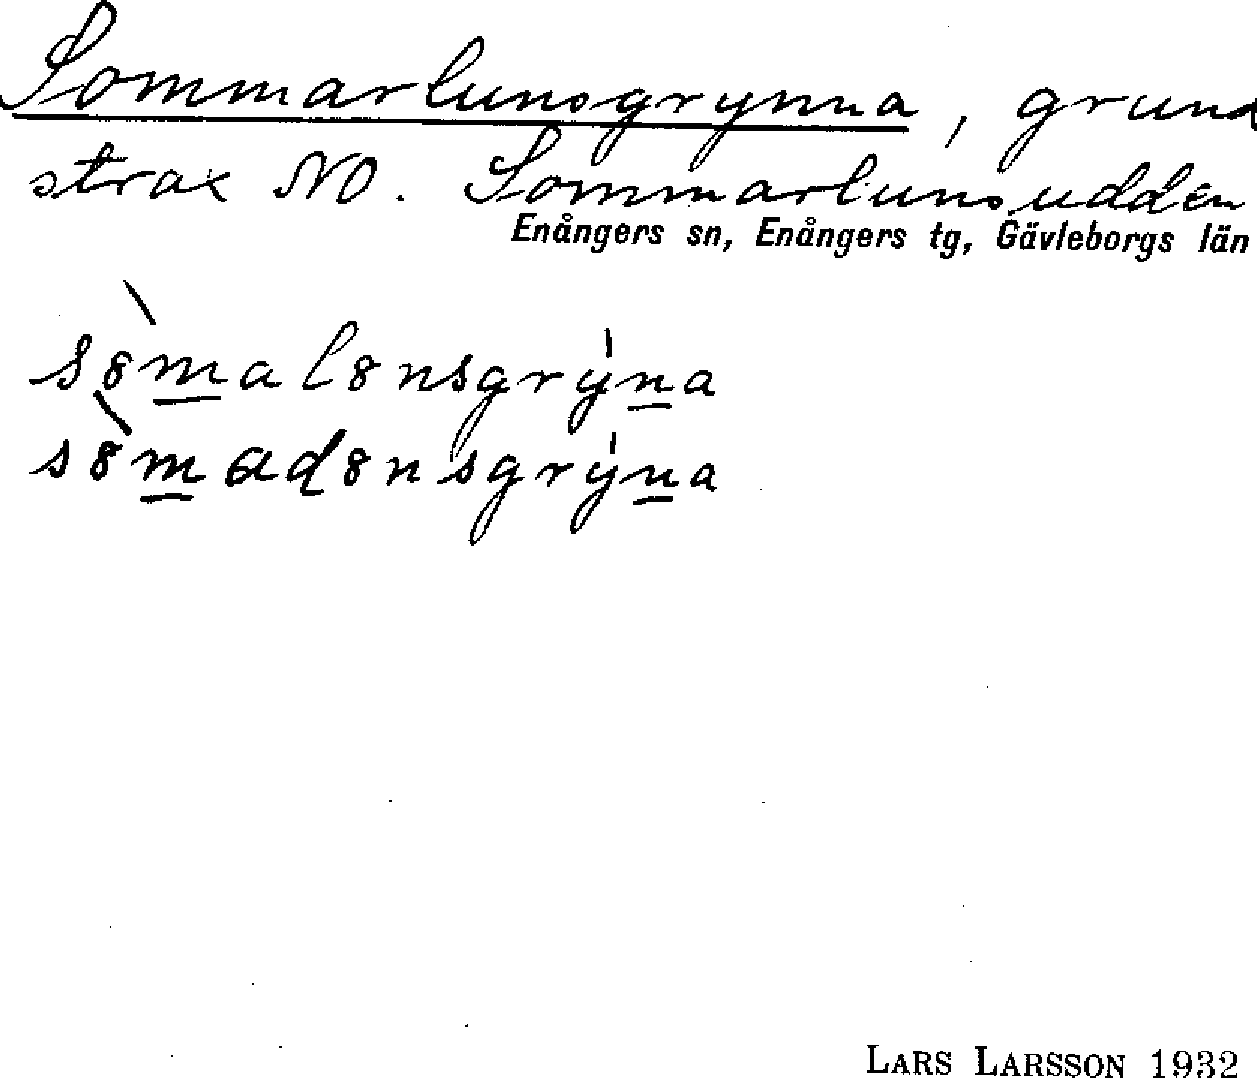 Sommarlunsgrynna, grund
strax NO. Sommarlunsudden
Enångers sn, Enångers tg, Gävleborgs län
sò̀m̲alɵnsgrýn̲a
sò̀m̲adɵnsgrýn̲a
LARS LARSSON 1932